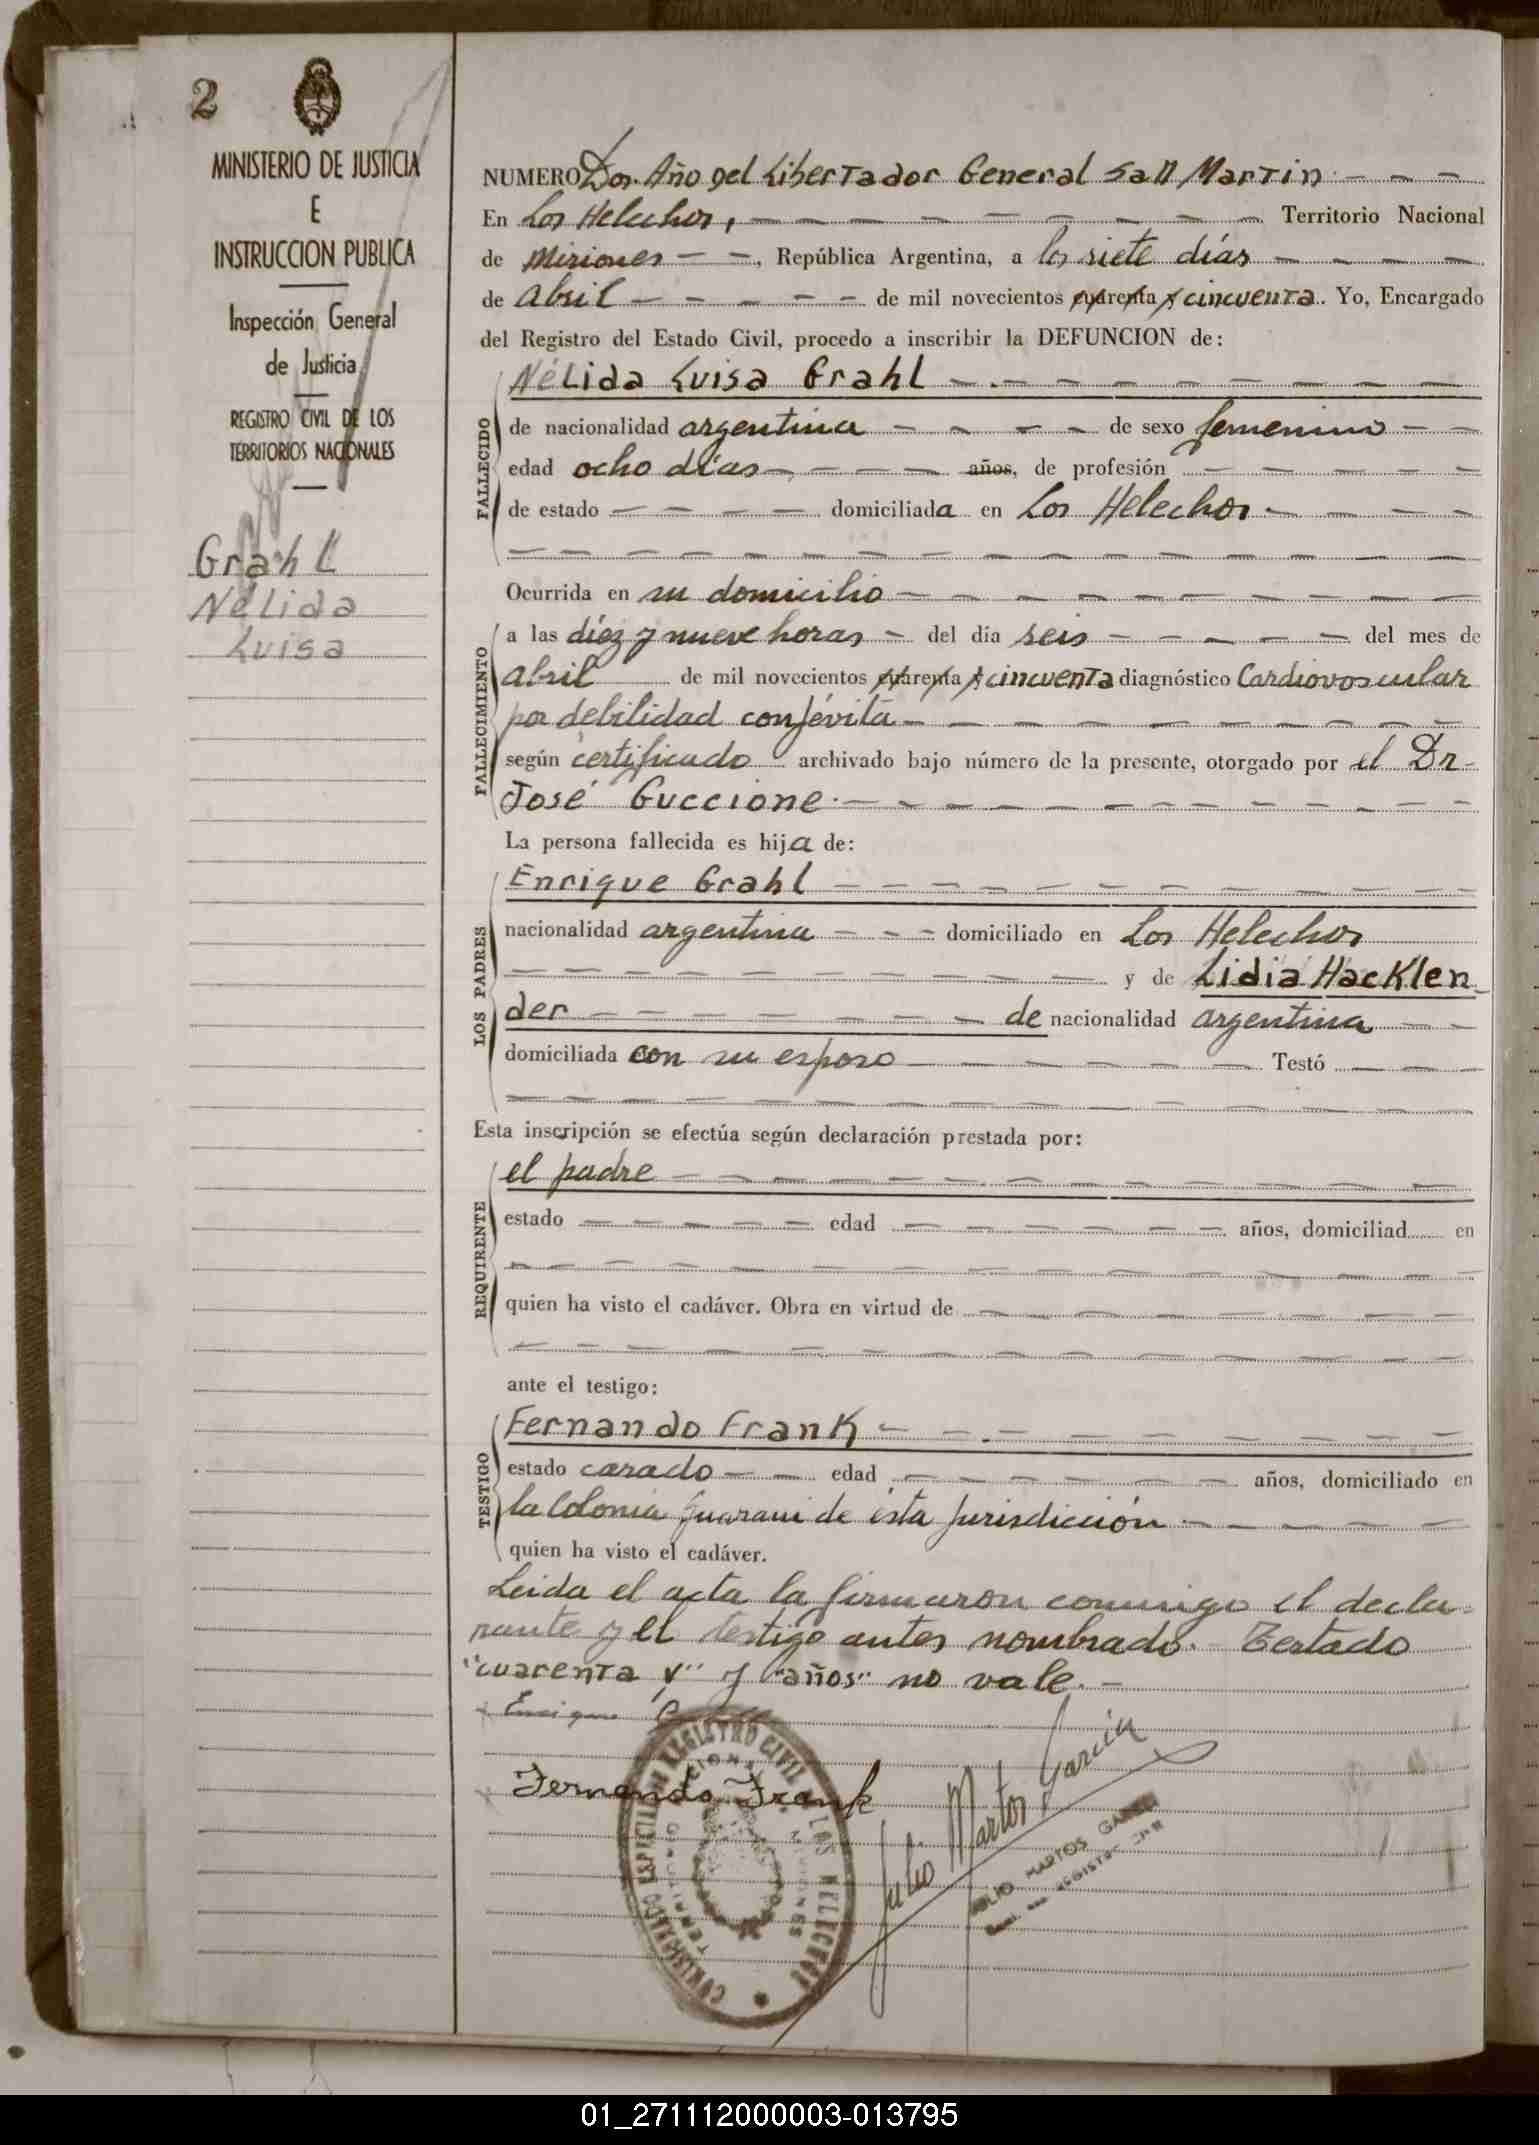 2
MINISTERIO DE JUSTICIA
E
INSTRUCCION PUBLICA
Inspección General
de Justicia
REGISTRO CIVIL DE LOS
TERRITORIOS NACIONALES
Grahl
Nélida
Luisa
NUMERO Dos. Año del Libertador General San Martin
En Los Helechos, Territorio Nacional
de Misiones, República Argentina, a los siete días
de Abril de mil novecientos cuarenta y cincuenta. Yo, Encargado
del Registro del Estado Civil, procedo a inscribir la DEFUNCION de:
FALLECIDO
Nélida Luisa Grahl
de nacionalidad argentina de sexo femenino
edad ocho días años, de profesión
de estado domiciliada en Los Helechos
Ocurrida en su domicilio
FALLECIMIENTO
a las diez y nueve horas del día seis del mes de
abril de mil novecientos cuarenta y cincuenta diagnóstico Cardiovascular
por debilidad congévita
según certificado archivado bajo número de la presente, otorgado por el Dr
José Guccione.
La persona fallecida es hija de:
LOS PADRES
Enrique Grahl
nacionalidad argentina domiciliado en Los Helechos
y de Lidia Hacklen
der de nacionalidad argentina
domiciliada con su esposo Testó
Esta inscripción se efectúa según declaración prestada por:
REQUIRENTE
el padre
estado edad años, domiciliad en
quien ha visto el cadáver. Obra en virtud de
ante el testigo:
TESTIGO
Fernando Frank
estado casado edad años, domiciliado en
la Colonia Guarani de ésta jurisdicción
quien ha visto el cadáver.
Leida el acta la firmaron conmigo el decla-
rante y el testigo antes nombrado. Testado
"cuarenta y" y "años" no vale.
Enrique
Fernando Frank
Julio Martos García
JULIO MARTOS
REGISTRO CIVIL
LOS HELECHOS
TERRITORIO
MISIONES
01_271112000003-013795